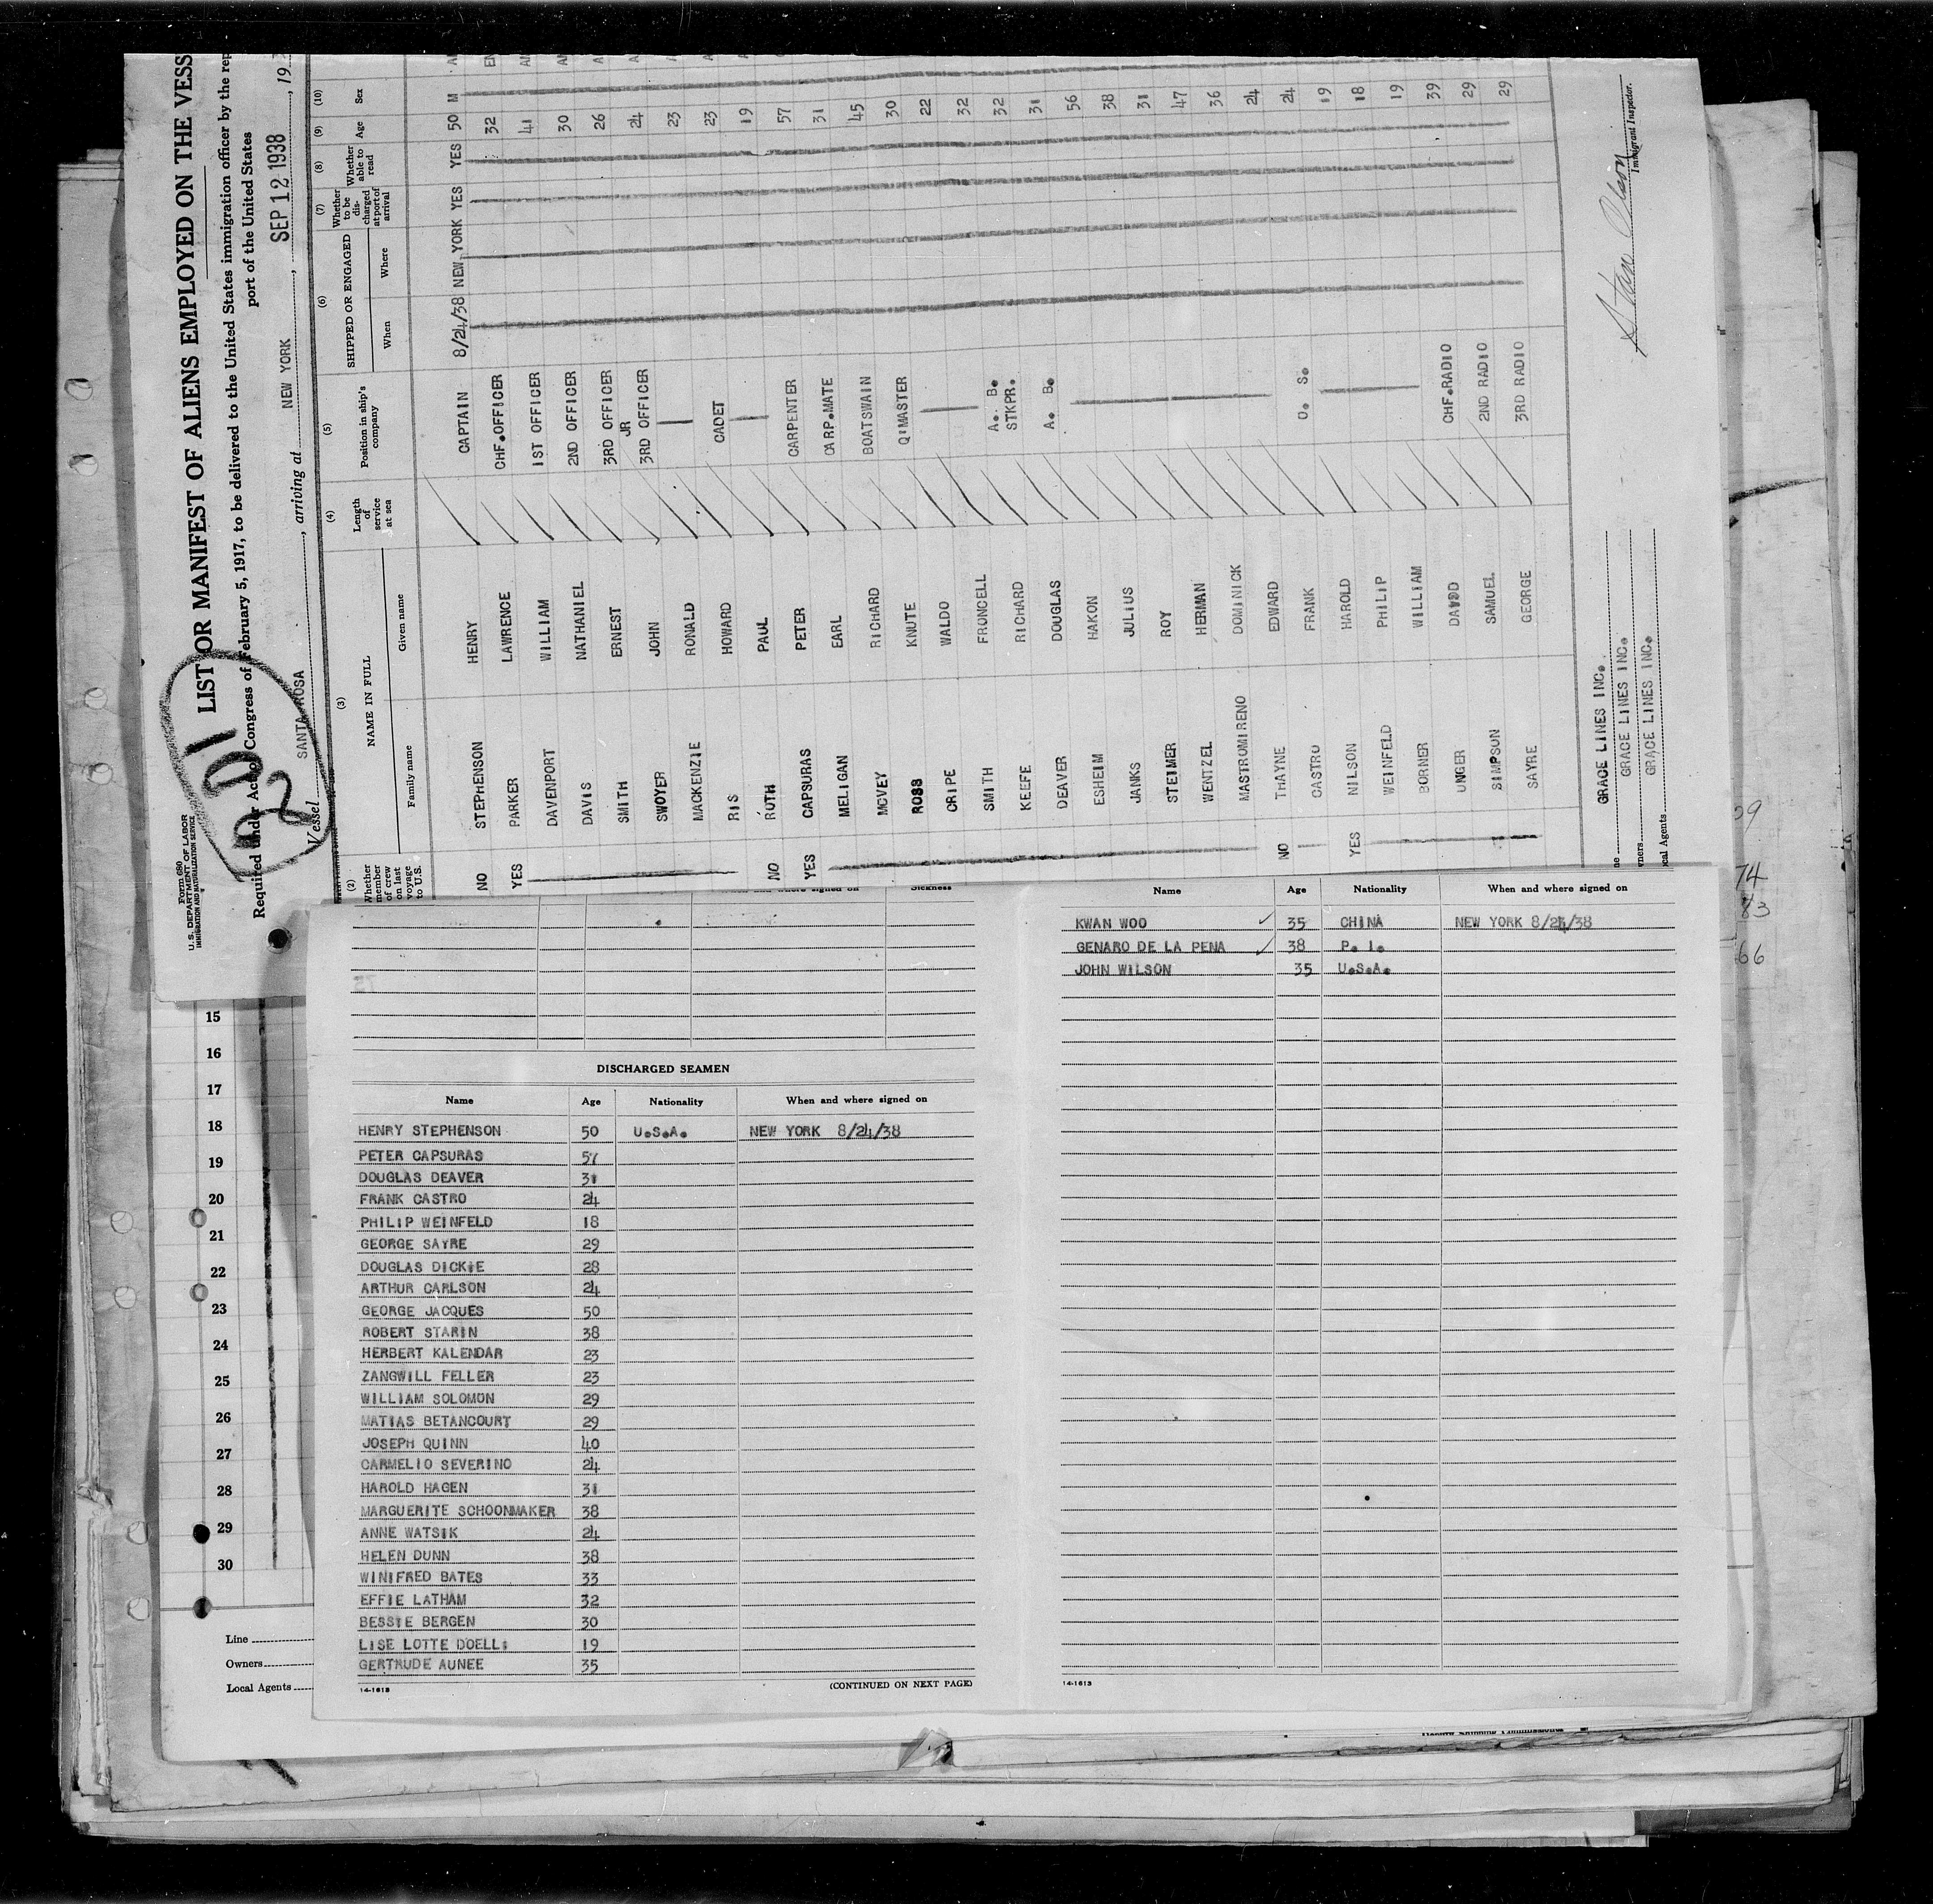 Form 680
U. S. DEPARTMENT OF LABOR
IMMIGRATION AND NATURALIZATION SERVICE
LIST OR MANIFEST OF ALIENS EMPLOYED ON THE VESS
Required under Act of Congress of February 5, 1917, to be delivered to the United States immigration officer by the rep
port of the United States
Vessel SANTA ROSA, arriving at NEW YORK, SEP 12 1938, 19
(2) (3) (4) (5) (6) (7) (8) (9) (10)
Whether member of crew on last voyage to U.S.
NAME IN FULL
Family name
Given name
Length of service at sea
Position in ship's company
SHIPPED OR ENGAGED
When
Where
Whether to be discharged at port of arrival
Whether able to read
Age
Sex
NO STEPHENSON HENRY CAPTAIN 8/24/38 NEW YORK YES YES 50 M
YES PARKER LAWRENCE CHF.OFFICER 32
DAVENPORT WILLIAM 1ST OFFICER 41
DAVIS NATHANIEL 2ND OFFICER 30
SMITH ERNEST 3RD OFFICER 26
SWOYER JOHN JR 3RD OFFICER 24
MACKENZIE RONALD 23
RIS HOWARD CADET 23
NO RUTH PAUL 19
YES CAPSURAS PETER CARPENTER 57
MELIGAN EARL CARP.MATE 31
MCVEY RICHARD BOATSWAIN 45
ROSS KNUTE Q'MASTER 30
CRIPE WALDO 22
SMITH FRONCELL 32
KEEFE RICHARD A. B. STKPR. 32
DEAVER DOUGLAS A. B. 31
ESHEIM HAKON 56
JANKS JULIUS 38
STEIMER ROY 31
WENTZEL HERMAN 47
MASTROMIRENO DOMINICK 36
THAYNE EDWARD 24
NO CASTRO FRANK O. S. 24
NILSON HAROLD 19
YES WEINFELD PHILIP 18
BORNER WILLIAM 19
UNGER DAVID CHF.RADIO 39
SIMPSON SAMUEL 2ND RADIO 29
SAYRE GEORGE 3RD RADIO 29
GRACE LINES INC.
GRACE LINES INC.
GRACE LINES INC.
Immigrant Inspector.
15
16
17
18
19
20
21
22
23
24
25
26
27
28
29
30
Line
Owners
Local Agents
DISCHARGED SEAMEN
Name Age Nationality When and where signed on
HENRY STEPHENSON 50 U.S.A. NEW YORK 8/24/38
PETER CAPSURAS 57
DOUGLAS DEAVER 31
FRANK CASTRO 24
PHILIP WEINFELD 18
GEORGE SAYRE 29
DOUGLAS DICKIE 28
ARTHUR CARLSON 24
GEORGE JACQUES 50
ROBERT STARIN 38
HERBERT KALENDAR 23
ZANGWILL FELLER 23
WILLIAM SOLOMON 29
MATIAS BETANCOURT 29
JOSEPH QUINN 40
CARMELIO SEVERINO 24
HAROLD HAGEN 31
MARGUERITE SCHOONMAKER 38
ANNE WATSIK 24
HELEN DUNN 38
WINIFRED BATES 33
EFFIE LATHAM 32
BESSIE BERGEN 30
LISE LOTTE DOELL 19
GERTRUDE AUNEE 35
14-1613
(CONTINUED ON NEXT PAGE)
Name Age Nationality When and where signed on
KWAN WOO 35 CHINA NEW YORK 8/24/38
GENARO DE LA PENA 38 P. I.
JOHN WILSON 35 U.S.A.
14-1613
74
83
66